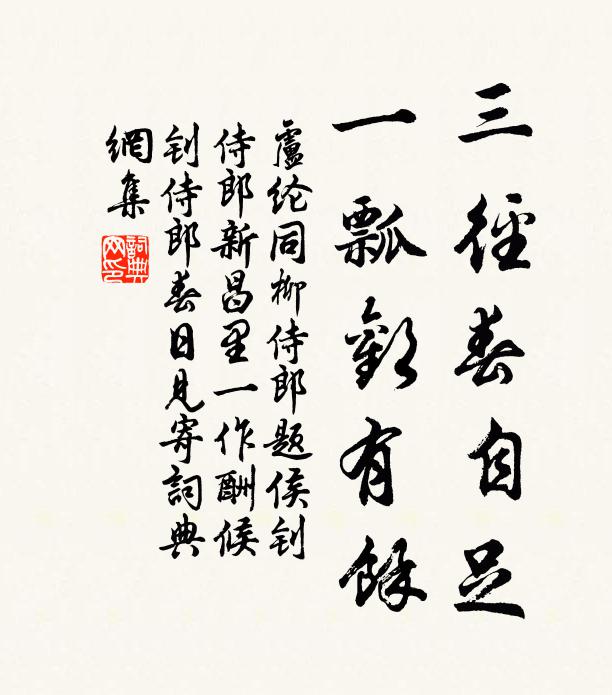 三徑春自足
一瓢歡有餘
盧纶同柳侍郎题侯钊
侍郎新昌里一作酬候
钊侍郎春日見寄詞典
網集
詞典網印